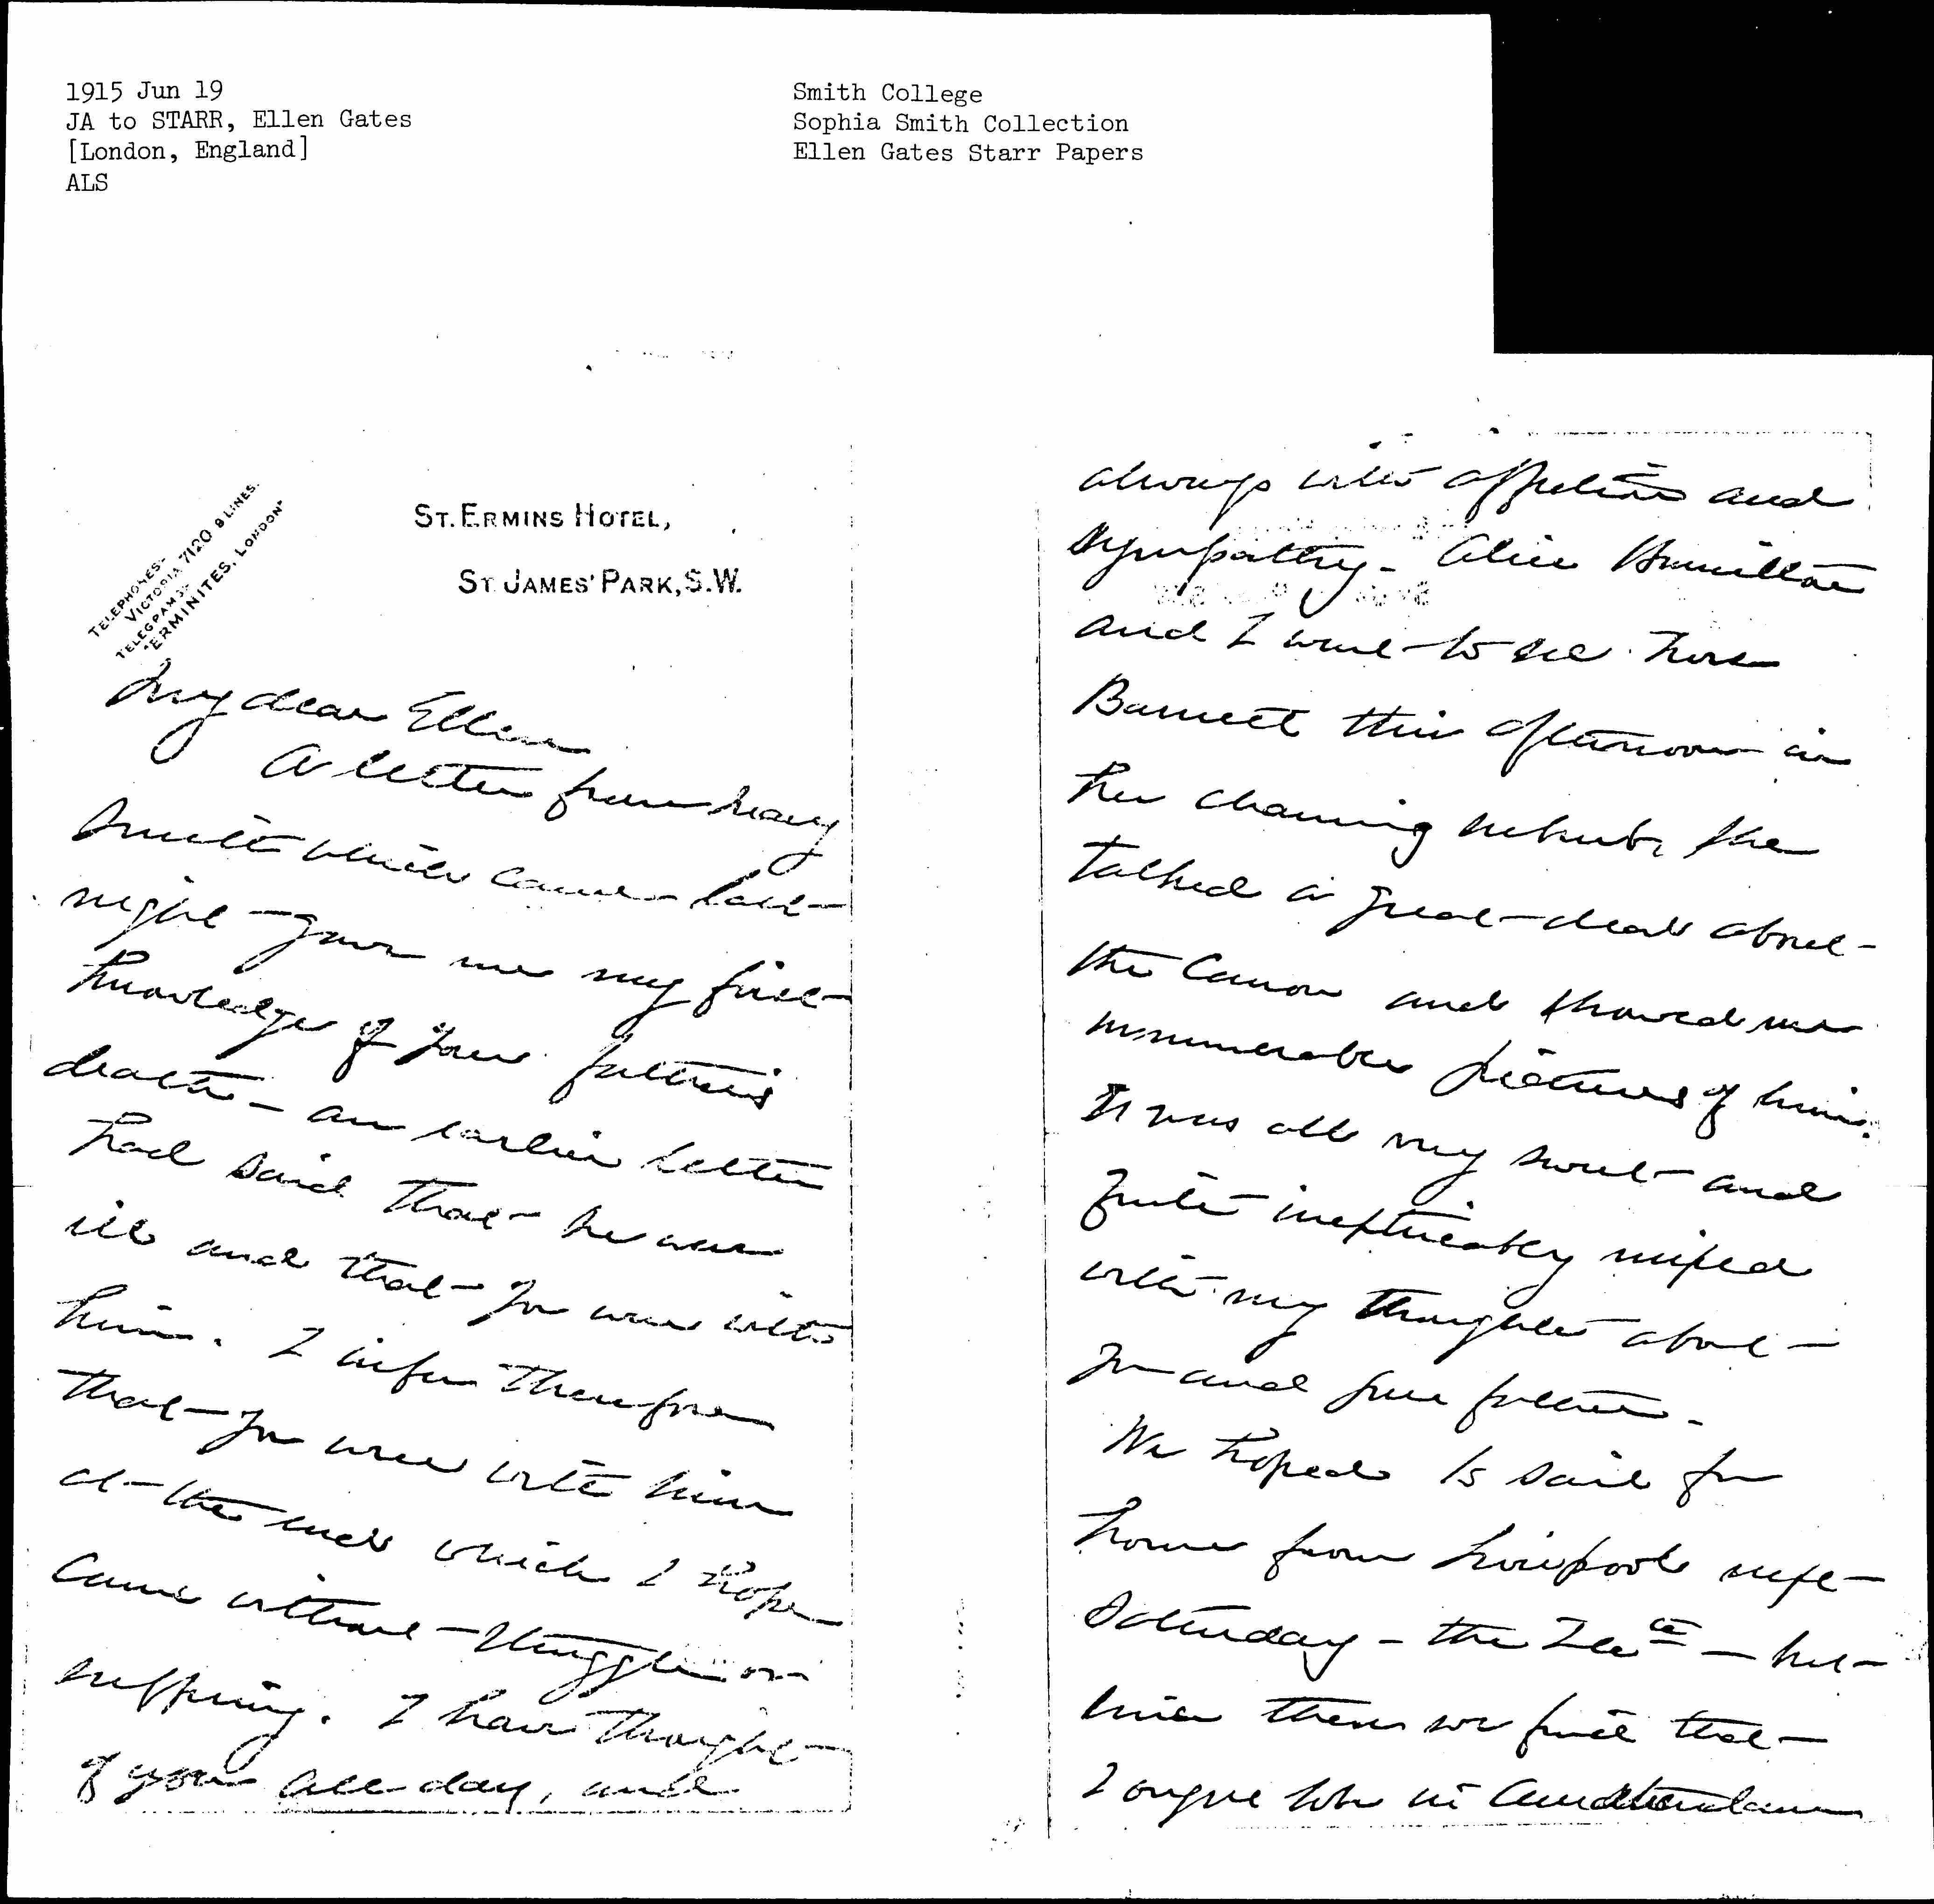 1915 Jun 19
JA to STARR, Ellen Gates
[London, England]
ALS
Smith College
Sophia Smith Collection
Ellen Gates Starr Papers
TELEPHONES:-
VICTORIA 7120 8 LINES.
TELEGRAMS:-
"ERMINITES, LONDON"
ST. ERMINS HOTEL,
ST JAMES' PARK, S.W.
My dear Ellen
A letter from Mary
Smith which came last
night gave me my first
knowledge of your father's
death - an earlier letter
had said that he was
ill and that you were with
him. I infer therefore
that you were with him
at the end which I hope
came without struggle or
suffering. I have thought
of you all day, and
always with affection and
sympathy - Alice Hamilton
and I went to see Mrs
Barnett this afternoon in
her charming suburb, she
talked a great deal about
the Canon and showed me
innumerable pictures of him.
It was all very sweet and
quite inextricably mixed
with my thoughts about
you and your father.
We hoped to sail for
home from Liverpool next
Saturday - the 26th - but
since then we find that
I ought to be in Amsterdam